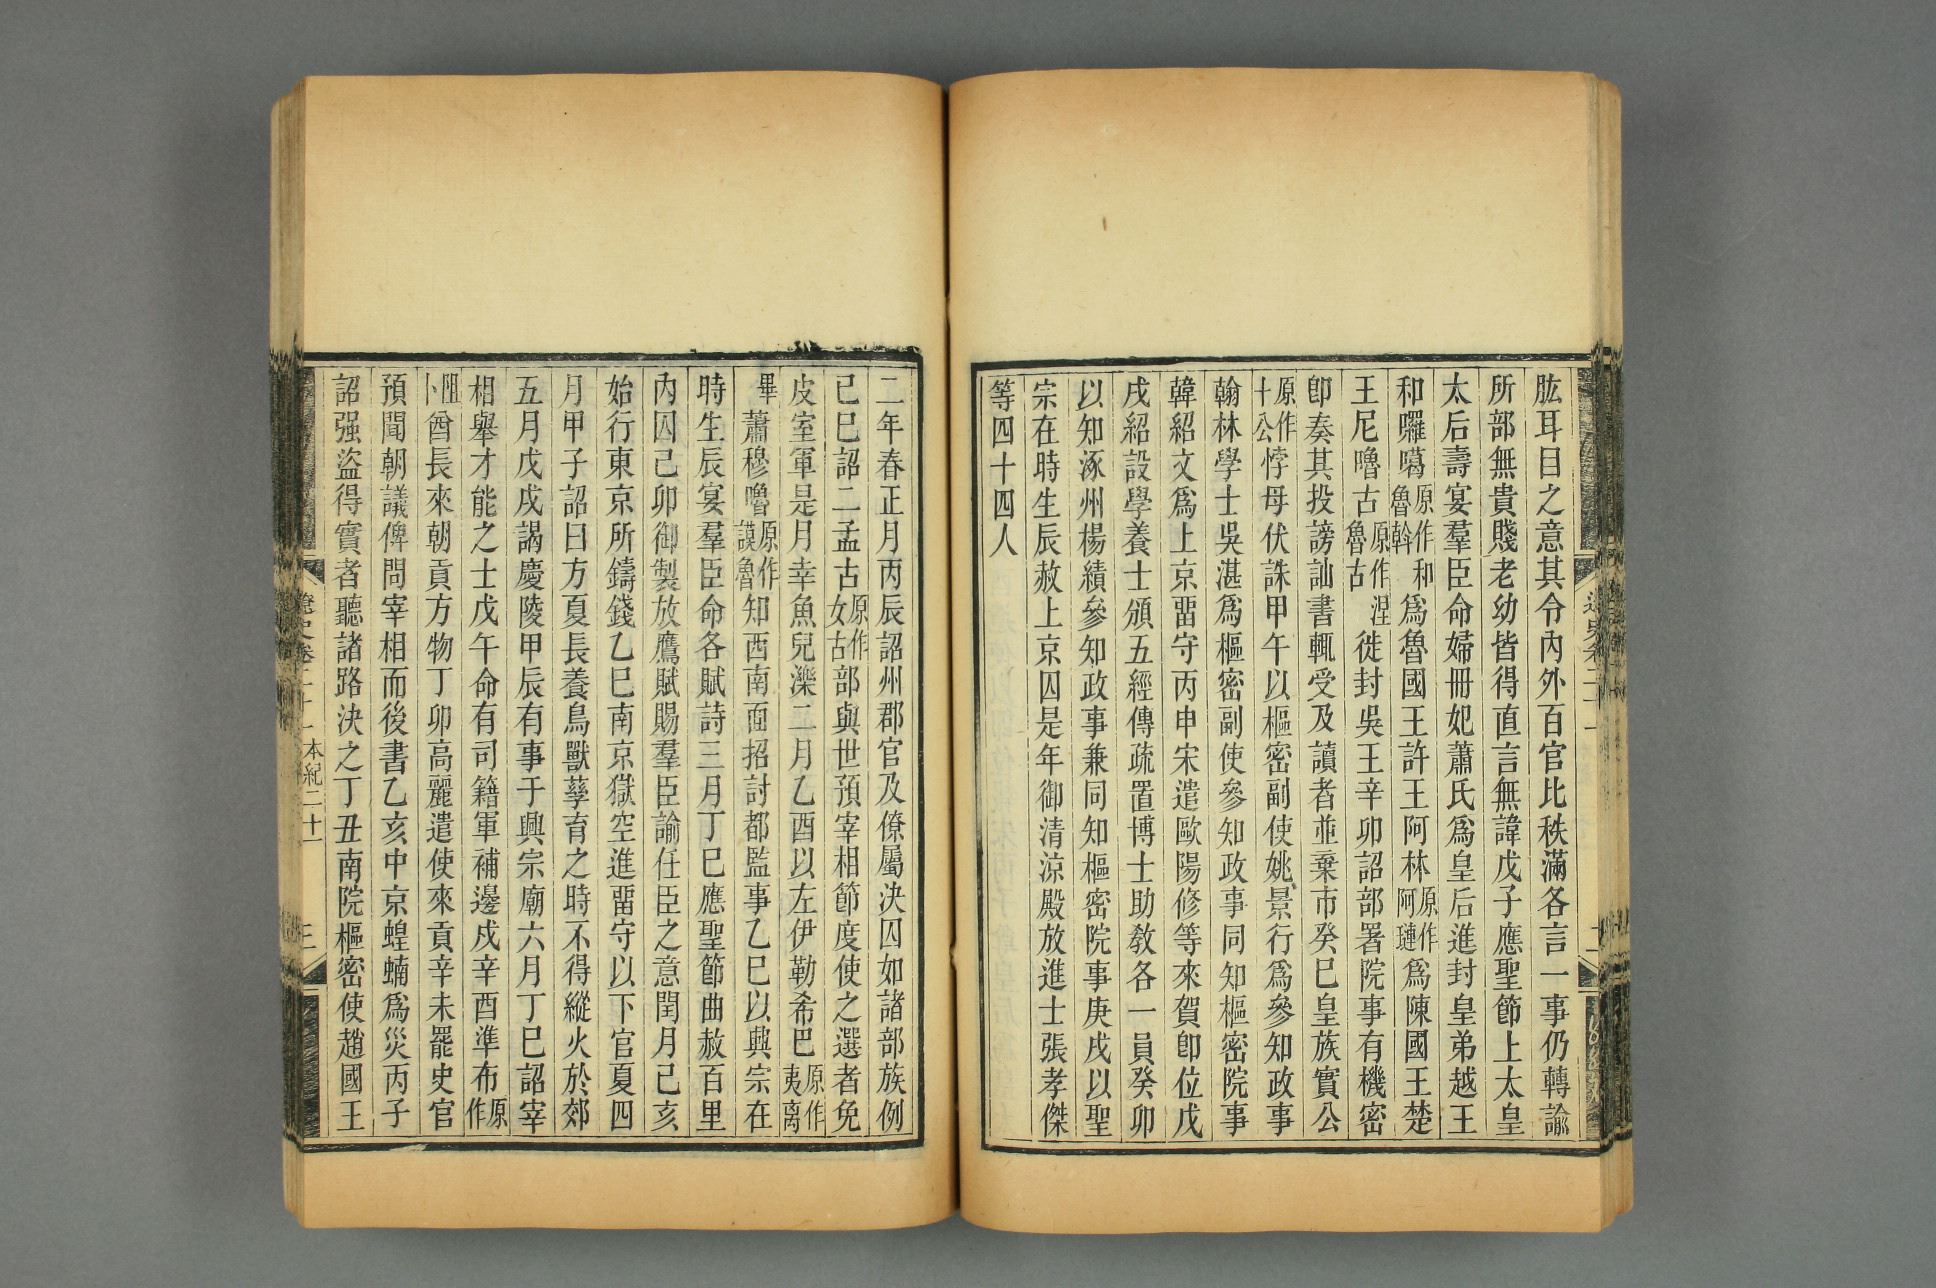 肱耳目之意其令內外百官比秩滿各言一事仍轉諭
所部無貴賤老幼皆得直言無諱戊子應聖節上太皇
太后壽宴羣臣命婦冊妃蕭氏爲皇后進封皇弟越王
和囉噶原作和魯斡爲魯國王許王阿林原作阿璉爲陳國王楚
王尼嚕古原作涅魯古徙封吳王辛卯詔部署院事有機密
卽奏其投謗訕書輒受及讀者並棄市癸巳皇族實公
原作十公悖母伏誅甲午以樞密副使姚景行爲參知政事
翰林學士吳湛爲樞密副使參知政事同知樞密院事
韓紹文爲上京畱守丙申宋遣歐陽修等來賀卽位戊
戌紹設學養士頒五經傳疏置博士助敎各一員癸卯
以知涿州楊績參知政事兼同知樞密院事庚戌以聖
宗在時生辰赦上京囚是年御清涼殿放進士張孝傑
等四十四人
二年春正月丙辰詔州郡官及僚屬決囚如諸部族例
己巳詔二孟古原作女古部與世預宰相節度使之選者免
皮室軍是月幸魚兒濼二月乙酉以左伊勒希巴原作夷离
畢蕭穆嚕原作謨魯知西南面招討都監事乙巳以興宗在
時生辰宴羣臣命各賦詩三月丁巳應聖節曲赦百里
內囚己卯御製放鷹賦賜羣臣諭任臣之意閏月己亥
始行東京所鑄錢乙巳南京獄空進畱守以下官夏四
月甲子詔曰方夏長養鳥獸孳育之時不得縱火於郊
五月戊戌謁慶陵甲辰有事于興宗廟六月丁巳詔宰
相舉才能之士戊午命有司籍軍補邊戍辛酉準布原作
阻卜酋長來朝貢方物丁卯高麗遣使來貢辛未罷史官
預聞朝議俾問宰相而後書乙亥中京蝗蝻爲災丙子
詔强盜得實者聽諸路決之丁丑南院樞密使趙國王
遼史卷二十一 本紀二十一 三